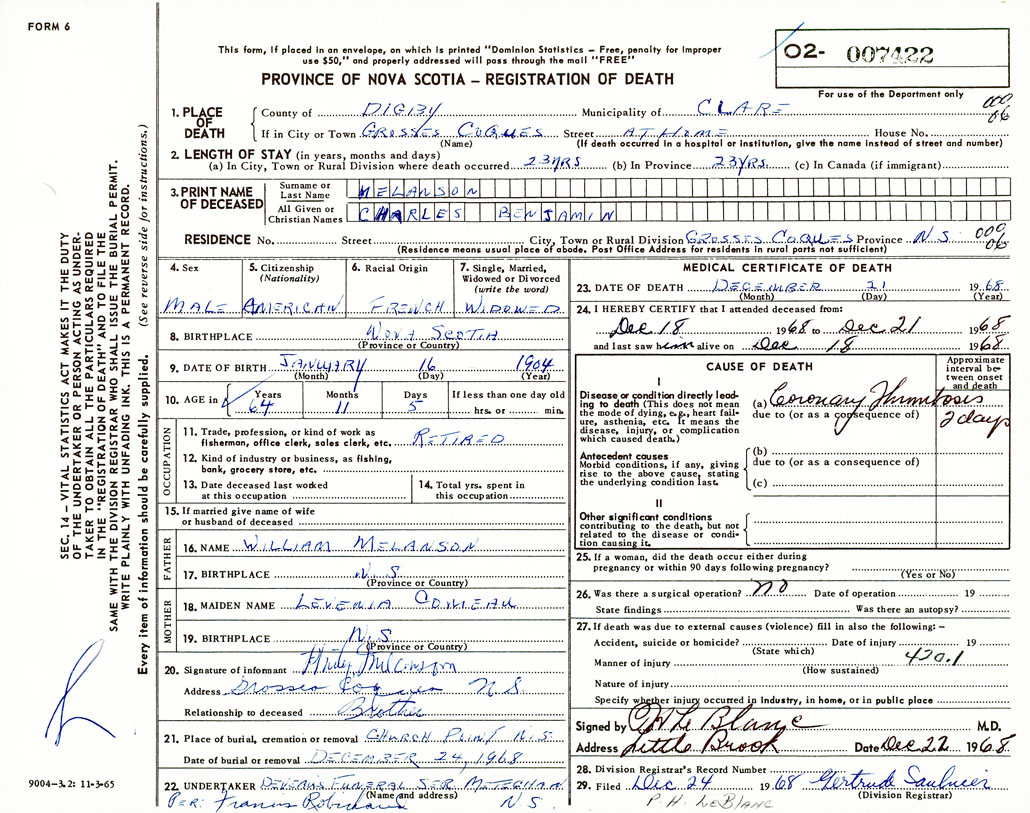 FORM 6
This form, if placed in an envelope, on which is printed "Dominion Statistics – Free, penalty for improper
use $50," and properly addressed will pass through the mail "FREE"
PROVINCE OF NOVA SCOTIA – REGISTRATION OF DEATH
02- 007422
For use of the Department only
SEC. 14 – VITAL STATISTICS ACT MAKES IT THE DUTY
OF THE UNDERTAKER OR PERSON ACTING AS UNDER-
TAKER TO OBTAIN ALL THE PARTICULARS REQUIRED
IN THE "REGISTRATION OF DEATH" AND TO FILE THE
SAME WITH THE DIVISION REGISTRAR WHO SHALL ISSUE THE BURIAL PERMIT.
WRITE PLAINLY WITH UNFADING INK. THIS IS A PERMANENT RECORD.
Every item of information should be carefully supplied. (See reverse side for instructions.)
1. PLACE OF DEATH
County of DIGBY Municipality of CLARE
If in City or Town GROSSES COQUES Street AT HOME House No.
(Name) (If death occurred in a hospital or institution, give the name instead of street and number)
000
06
2. LENGTH OF STAY (in years, months and days)
(a) In City, Town or Rural Division where death occurred 23 YRS (b) In Province 23 YRS. (c) In Canada (if immigrant)
3. PRINT NAME OF DECEASED
Surname or Last Name MELANSON
All Given or Christian Names CHARLES BENJAMIN
RESIDENCE No. Street City, Town or Rural Division GROSSES COQUES Province N.S.
(Residence means usual place of abode. Post Office Address for residents in rural parts not sufficient)
000
06
4. Sex 5. Citizenship (Nationality) 6. Racial Origin 7. Single, Married, Widowed or Divorced (write the word)
MALE AMERICAN FRENCH WIDOWED
8. BIRTHPLACE NOVA SCOTIA
(Province or Country)
9. DATE OF BIRTH JANUARY 16 1904
(Month) (Day) (Year)
10. AGE in Years Months Days If less than one day old
64 11 5 hrs. or min.
OCCUPATION
11. Trade, profession, or kind of work as
fisherman, office clerk, sales clerk, etc. RETIRED
12. Kind of industry or business, as fishing,
bank, grocery store, etc.
13. Date deceased last worked
at this occupation
14. Total yrs. spent in
this occupation
15. If married give name of wife
or husband of deceased
FATHER
16. NAME WILLIAM MELANSON
17. BIRTHPLACE N.S.
(Province or Country)
MOTHER
18. MAIDEN NAME LEVENIA COMEAU
19. BIRTHPLACE N.S.
(Province or Country)
20. Signature of informant Melanson
Address Grosses Coques N.S.
Relationship to deceased Brother
21. Place of burial, cremation or removal CHURCH POINT N.S.
Date of burial or removal DECEMBER 24, 1968
22. UNDERTAKER FUNERAL SER. METEGHAN
(Name and address)
PER: Francis N.S.
9004–3.2: 11-3-65
MEDICAL CERTIFICATE OF DEATH
23. DATE OF DEATH DECEMBER 21 1968
(Month) (Day) (Year)
24. I HEREBY CERTIFY that I attended deceased from:
Dec 18 1968 to Dec 21 1968
and last saw him alive on Dec 18 1968
CAUSE OF DEATH
Approximate interval between onset and death
I
Disease or condition directly lead-
ing to death (This does not mean
the mode of dying, e.g., heart fail-
ure, asthenia, etc. It means the
disease, injury, or complication
which caused death.)
(a) Coronary Thrombosis
due to (or as a consequence of)
2 days
Antecedent causes
Morbid conditions, if any, giving
rise to the above cause, stating
the underlying condition last.
(b)
due to (or as a consequence of)
(c)
II
Other significant conditions
contributing to the death, but not
related to the disease or condi-
tion causing it.
25. If a woman, did the death occur either during
pregnancy or within 90 days following pregnancy?
(Yes or No)
26. Was there a surgical operation? no Date of operation 19
State findings Was there an autopsy?
27. If death was due to external causes (violence) fill in also the following: –
Accident, suicide or homicide? Date of injury 19
(State which)
Manner of injury 420.1
(How sustained)
Nature of injury
Specify whether injury occurred in Industry, in home, or in public place
Signed by Le Blanc M.D.
Address Little Brook Date Dec 22 1968
28. Division Registrar's Record Number
29. Filed Dec 24 1968 Gertrude Saulnier
(Division Registrar)
P. H. LEBLANC